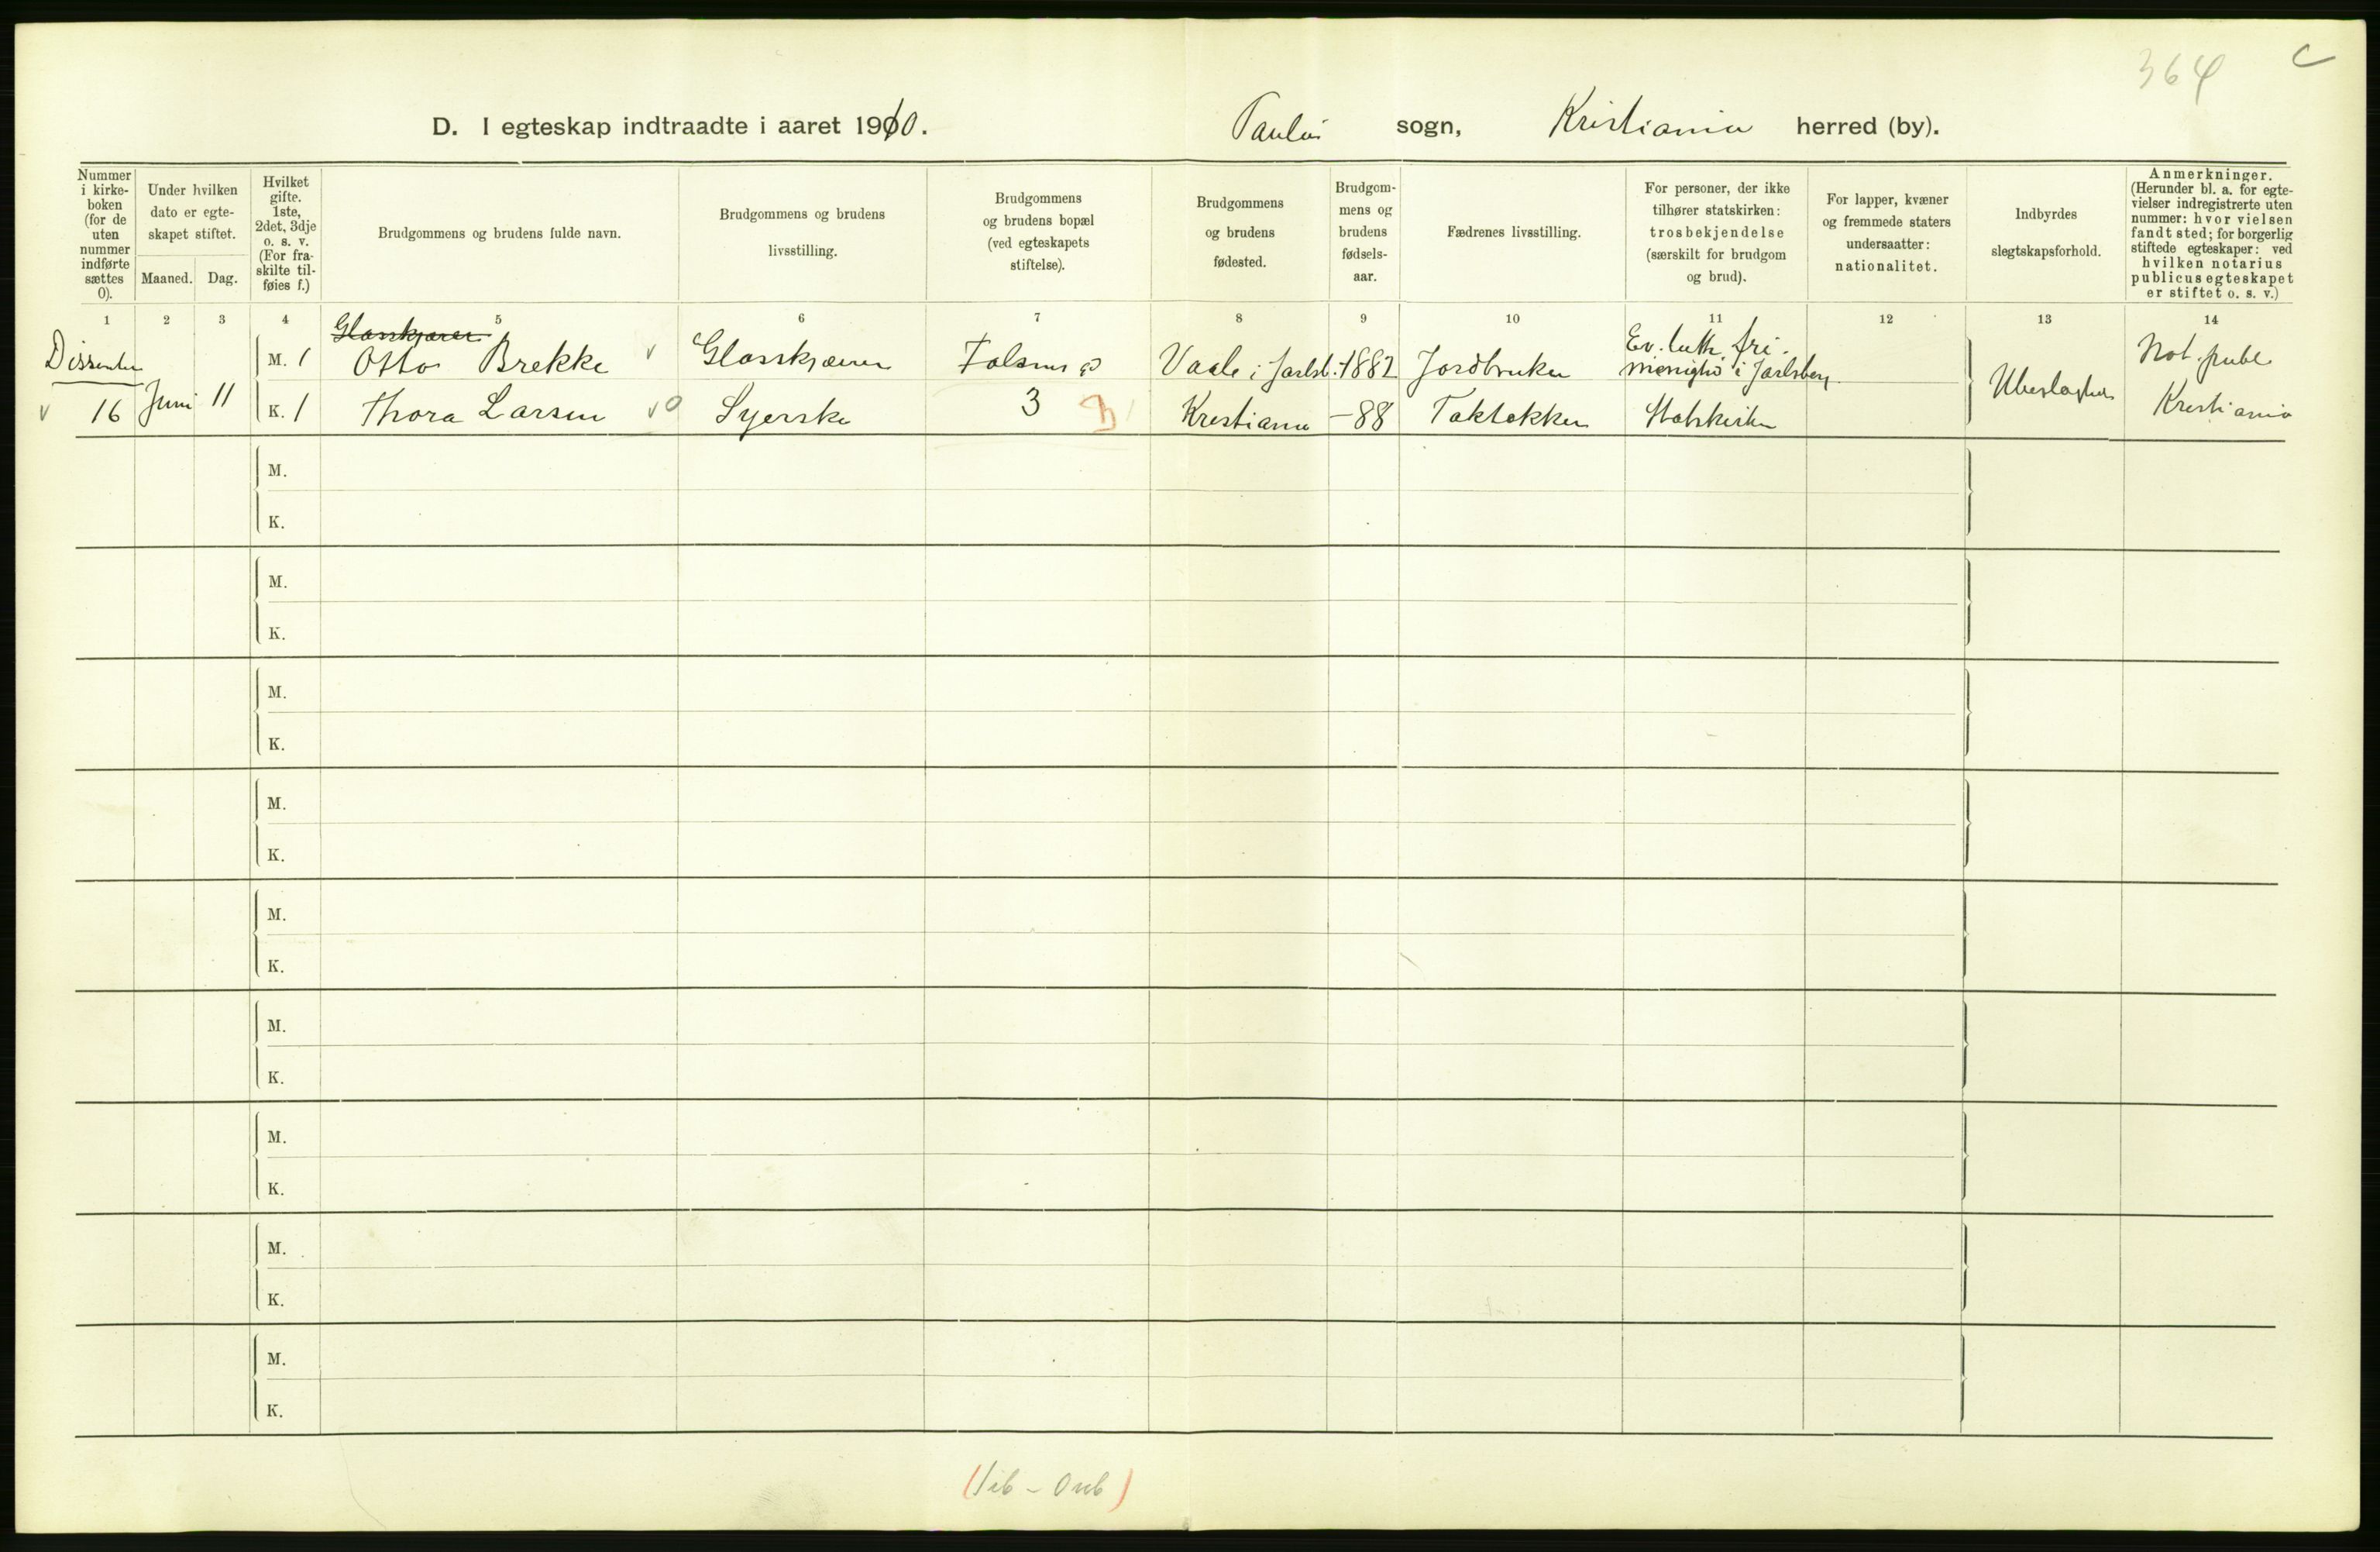 364 C
D. I egteskap indtraadte i aaret 1910. Paulus sogn, Kristiania herred (by).
Nummer i kirkeboken (for de uten nummer indførte sættes 0).
Under hvilken dato er egteskapet stiftet.
Maaned. Dag.
Hvilket gifte. 1ste, 2det, 3dje o. s. v. (For fraskilte tilføies f.)
Brudgommens og brudens fulde navn.
Brudgommens og brudens livsstilling.
Brudgommens og brudens bopæl (ved egteskapets stiftelse).
Brudgommens og brudens fødested.
Brudgommens og brudens fødselsaar.
Fædrenes livsstilling.
For personer, der ikke tilhører statskirken: trosbekjendelse (særskilt for brudgom og brud).
For lapper, kvæner og fremmede staters undersaatter: nationalitet.
Indbyrdes slegtskapsforhold.
Anmerkninger. (Herunder bl. a. for egtevielser indregistrerte uten nummer: hvor vielsen fandt sted; for borgerlig stiftede egteskaper: ved hvilken notarius publicus egteskapet er stiftet o. s. v.)
1 2 3 4 5 6 7 8 9 10 11 12 13 14
Glasskjærer
Dissenter M. 1 Otto Brekke v Glasskjærer Vaale i Jarlsb. 1882 Jordbruker Ev. luth. fri. menighd i Jarlsberg Not. publ
v 16 Juni 11 K. 1 Thora Larsen v 0 Syerske 3 Kristiania -88 Taktækker Statskirken Ubeslægtet Kristiania
M.
K.
M.
K.
M.
K.
M.
K.
M.
K.
M.
K.
M.
K.
M.
K.
M.
K.